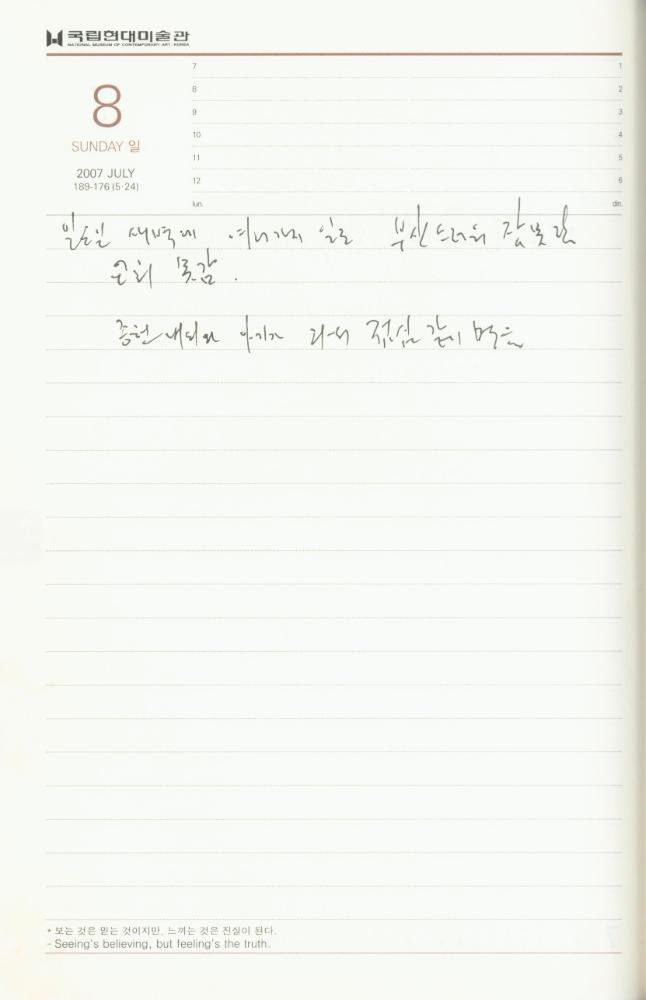 국립현대미술관
NATIONAL MUSEUM OF CONTEMPORARY ART, KOREA
8
SUNDAY 일
2007 JULY
189-176 (5·24)
7
8
9
10
11
12
lun.
1
2
3
4
5
6
din.
일요일 새벽에 여러가지 일로 부산 잠 못 잔
교회 못감.
종현 내외와 아기가 와서 점심 같이 먹음
* 보는 것은 믿는 것이지만, 느끼는 것은 진실이 된다.
- Seeing's believing, but feeling's the truth.